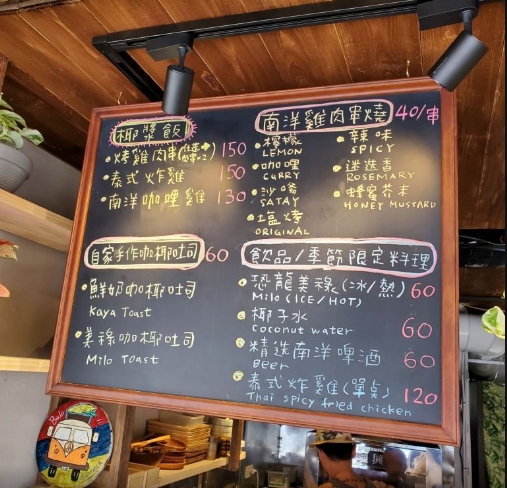 椰漿飯
烤雞肉串 150
泰式炸雞 150
南洋咖哩雞 130
南洋雞肉串燒 40/串
檸檬
LEMON
咖哩
CURRY
沙嗲
SATAY
塩烤
ORIGINAL
辣味
SPICY
迷迭香
ROSEMARY
蜂蜜芥末
HONEY MUSTARD
自家手作咖椰吐司 60
鮮奶咖椰吐司
Kaya Toast
美祿咖椰吐司
Milo Toast
飲品/季節限定料理
恐龍美祿(冰/熱) 60
Milo (ICE/HOT)
椰子水 60
Coconut water
精选南洋啤酒 60
Beer
泰式炸雞(單點) 120
Thai spicy fried chicken